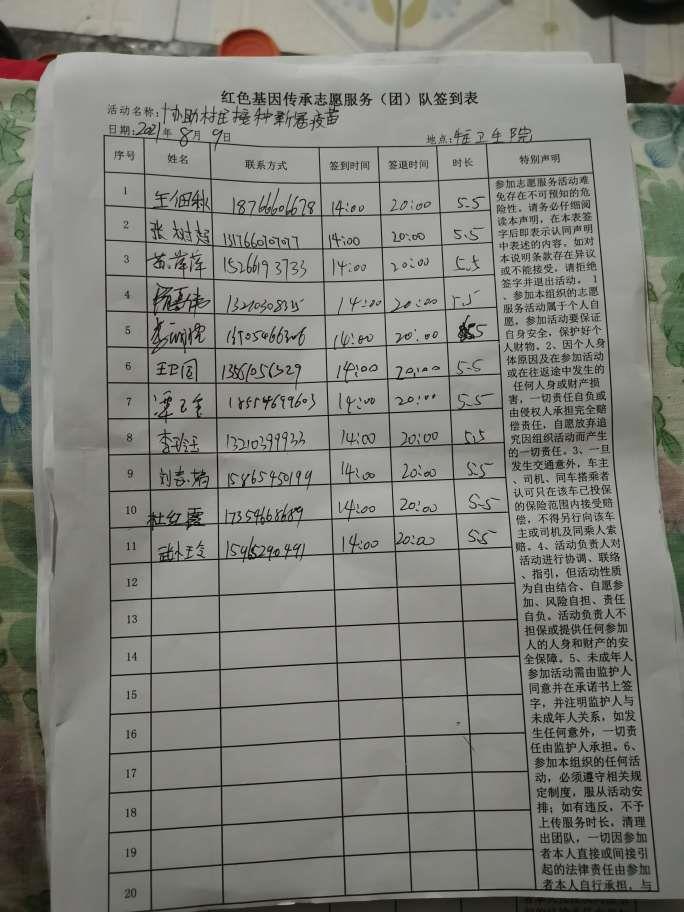 红色基因传承志愿服务（团）队签到表
活动名称：协助村民接种新冠疫苗
日期：2021年8月9日 地点：镇卫生院
序号 姓名 联系方式 签到时间 签退时间 时长 特别声明
1 18766606678 14:00 20:00 5.5
2 张树超 13176601077 14:00 20:00 5.5
3 苏萍萍 15266193733 14:00 20:00 5.5
4 13210308315 14:00 20:00 5.5
5 14:00 20:00 5.5
6 王卫国 14:00 20:00 5.5
7 18554699603 14:00 20:00 5.5
8 李玲玉 13210399933 14:00 20:00 5.5
9 刘志瑞 15865450199 14:00 20:00 5.5
10 杜红霞 17354668689 14:00 20:00 5.5
11 14:00 20:00 5.5
12
13
14
15
16
17
18
19
20
参加志愿服务活动难
免存在不可预知的危
险性。请务必仔细阅
读本声明，在本表签
字后即表示认同声明
中表述的内容。如对
本说明条款存在异议
或不能接受，请拒绝
签字并退出活动。 1
、参加本组织的志愿
服务活动属于个人自
愿。参加活动要保证
自身安全，保护好个
人财物。2、因个人身
体原因及在参加活动
或在往返途中发生的
任何人身或财产损
害，一切责任自负或
由侵权人承担完全赔
偿责任，自愿放弃追
究因组织活动而产生
的一切责任。3、一旦
发生交通意外，车主
、司机、同车搭乘者
认可只在该车已投保
的保险范围内接受赔
偿，不得另行向该车
主或司机及同乘人索
赔。4、活动负责人对
活动进行协调、联络
、指引，但活动性质
为自由结合、自愿参
加、风险自担、责任
自负。活动负责人不
担保或提供任何参加
人的人身和财产的安
全保障。5、未成年人
参加活动需由监护人
同意并在承诺书上签
字，并注明监护人与
未成年人关系，如发
生任何意外，一切责
任由监护人承担。6、
参加本组织的任何活
动，必须遵守相关规
定制度，服从活动安
排；如有违反，不予
上传服务时长，清理
出团队，一切因参加
者本人直接或间接引
起的法律责任由参加
者本人自行承担，与